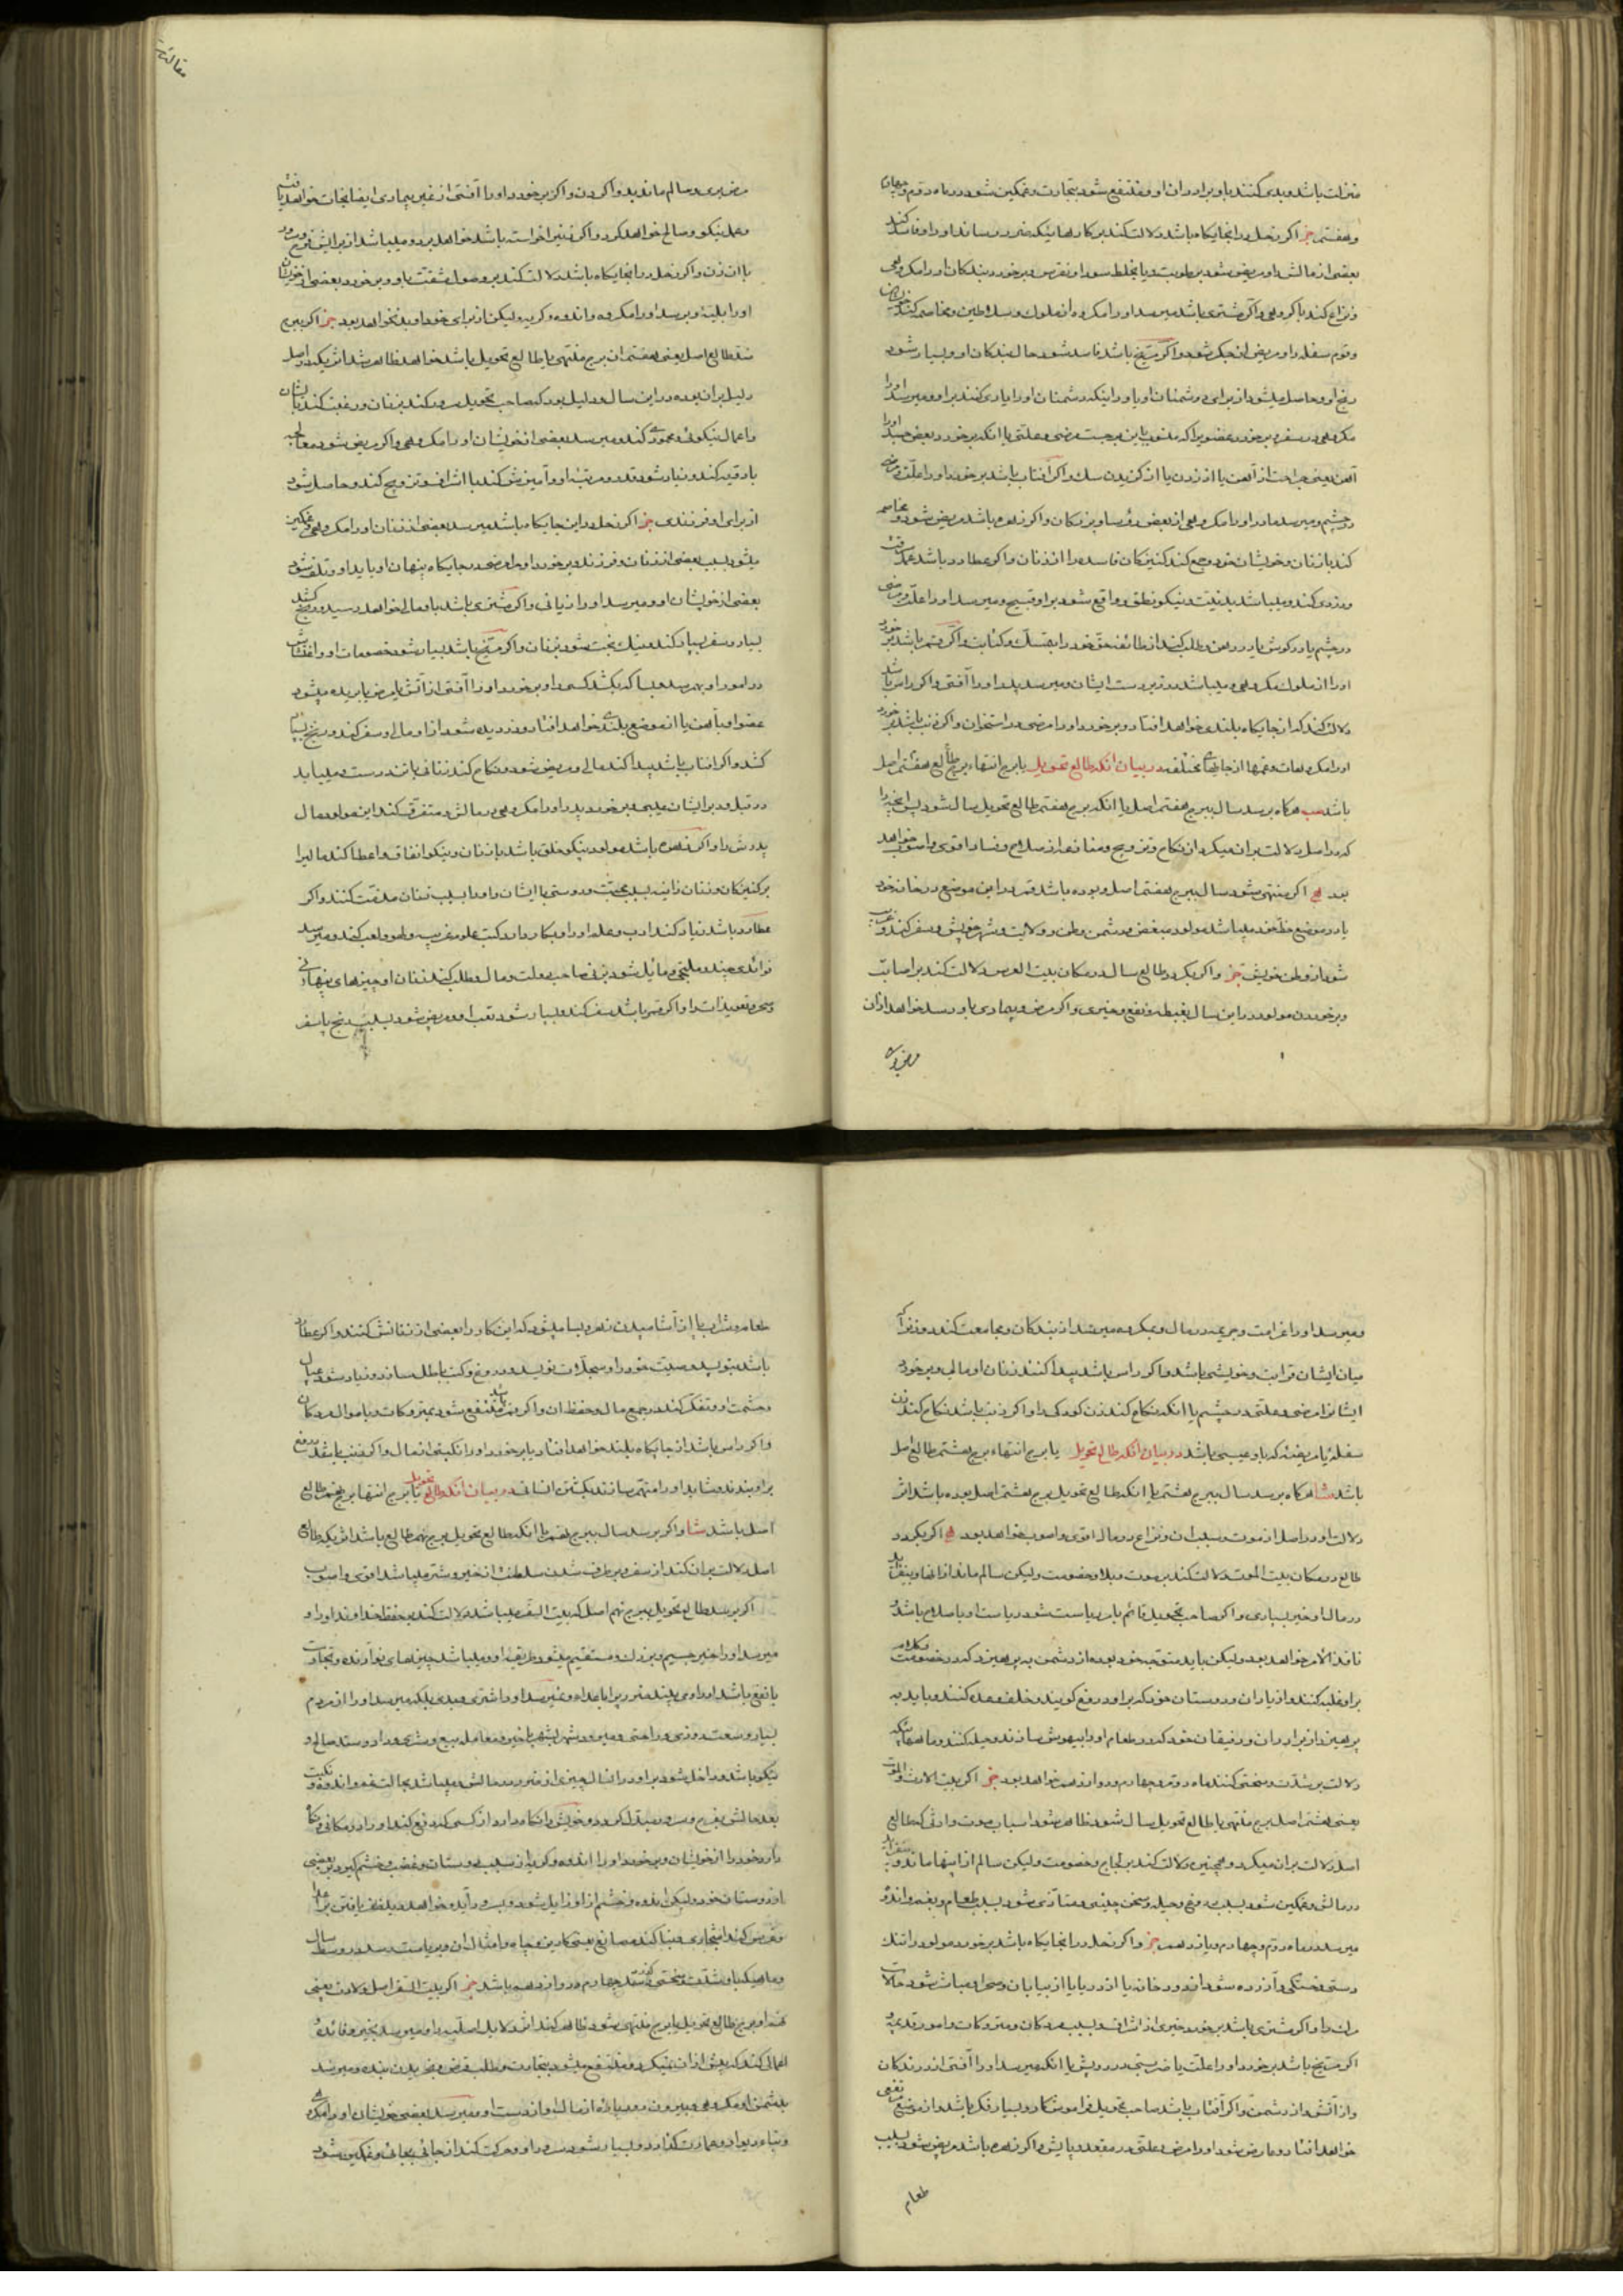 منزلت باشد و بدی کنند با و برادران او و منتفع شود بتجارت و غمکین شود در ماه دوم و چهارم
و هفتم جز اکر زحل در انجایکاه باشد دلالت کند بر کارها نیک و ضرر رساند او را و فاسد کند
بعضی از مالش را و مریض شود برطوبت و یا بخلط سودا و نقرس و برخورد بندکان او را مکروهی
و نزاع کند با کروهی و اکر مشتری باشد میرسد او را مکروه از ملوک و سلاطین و مخاصمه کند
و قوم سفله را و مریض از جکر شود و اکر مریخ باشد فاسد شود حال بندکان او و بسیار شود
رنج او و حاصل میشود از برای دشمنان او یا و را اینکه دشمنان او را یاری کنند بر او و میرسد او را
مکروهی در سفر و برخورد عضوی را که منسوب باین برجست مرضی و علتی یا انکه برخورد بعض جسد او را
آهن یعنی جراحت از آهن یا از زدن یا از کزیدن سک و اکر آفتاب باشد برخورد او را علت و مرضی
در چشم و میرسد مادر او را مکروهی از بعض رؤسا و بزرکان و اکر زهره باشد مریض شود و مخاصمه
کند با زنان و خویشان خود و جمع کند کنیزکان فاسده را از زنان و اکر عطارد باشد عمل سرقت
و دزدی کند و میباشد بد نیت و نیکو نطق و واقع شود بر او قبیح و میرسد او را علت و مرضی
در چشم یا در کوش یا در دهن و طلب کند از طائفه حق خود را بتمسک و کتابت و اکر قمر باشد برخورد
او را از ملوک مکروهی و میباشد در زیر دست ایشان و میرسد پدر او را آفتی و اکر راس باشد
دلالت کند که از جایکاه بلندی خواهد افتاد و برخورد او را مرضی در استخوان و اکر ذنب باشد برخورد
او را مکروهات و غمها از جایهای مختلف در بیان انکه طالع تحویل یا برج انتهاء برج طالع هفتم اصل
باشد هرکاه برسد سال ببرج هفتم اصل یا انکه برج هفتم طالع تحویل سال شود پس انچه را
که در اصل دلالت بران میکرد از نکاح و تزویج و منازعه از صلاح و فساد اقوی و اصوب خواهد
بود اکر منتهی شود سال ببرج هفتم اصل و بوده باشد قمر در این موضع در خانه خود
یا در موضع حظ خود میباشد مولود مبغض و دشمن وطن و ولایت و شهر خویش و سفر کند و غریب
شود از وطن خویش جز و اکر بکردد طالع سال در مکان بیت العرس دلالت کند بر اصابت
و برخوردن مولود در این سال بغبطه و نفع و خیری و اکر مرض و بیماری باو رسد خواهد ازان
مرض بری
مقالت
مرض بری و سالم ماند بدوا کردن و اکر برخورد او را آفتی از غیر بیماری ایضا نجات خواهد یافت
و عمل نیکو و صالح خواهد کرد و اکر زنی را خواسته باشد خواهد برد و میباشد از برایش فرح و سرور
با ان زن و اکر زحل در انجایکاه باشد دلالت کند بر وصول مشقت باو و برخورد بعضی از خویشان
او را بلیه و برسد او را مکروه و اندوه و کریه ولیکن از برای خود او بد نخواهد بود جز اکر برج
هفتم طالع اصل یعنی هفتم ان برج منتهی یا طالع تحویل باشد خواهد ظاهر شد اثر یکه در اصل
دلیل بران بوده و در این سال دلیل بود که صاحب تحویل سرور کند بزنان و رغبت کند بایشان
و اعمال نیکو و محموده کند و میرسد بعضی از خویشان او را مکروهی و اکر مریض شود معالجه
بادویه کند و زیاد شود قدر و مرتبه او و آمیزش کند با اشراف و تزویج کند و حاصل شود
از برای او فرزندی جز اکر زحل در این جایکاه باشد میرسد بعضی از زنان او را مکروهی و غمکین
میشود بسبب بعضی از زنان و فرزند و برخورد او را مرضی در جایکاه پنهان او باید او و تلف شود
بعضی از خویشان او و میرسد او را زیانی و اکر مشتری باشد باو مالی خواهد رسید و رنج کشد
بسیار و سفر بسیار کند و نیک بخت شود بزنان و اکر مریخ باشد بسیار شود خصومات او و اغتشاش
در امور او بهم رسد و بسا که بکشد کسی را و برخورد او را آفتی از آتش یا مرض یا بریده میشود
عضو او بآهن یا از موضع بلندی خواهد افتاد و دزدیده شود از او مالی و سفر کند و رنج بسیار
کشد و اکر افتاب باشد پیدا کند مالی و مریض شود و نکاح کند زنانی با تندرست و میباید
در قبل و دبر ایشان عیبی و برخورد پدر او را مکروهی در مالش و متفرق کند این مولود مال
پدرش را و اکر زهره باشد مولود نیکو خلق باشد با زنان و نیکو انفاق و اعطا کند مالی را
بر کنیزکان و زنان زانیه بسبب محبت و دوستی با ایشان و او را بسبب زنان مذمت کنند و اکر
عطارد باشد زیاد کند ادب و علم او را و بکار دارد کتب علوم غریبه و لهو و لعب کند و میرسد
فوائدی چند و ملتجی و مایل شود بزنی صاحب دولت و مال و طلب کند زنان او چیزهای پنهانی
و سحر و تعویذات را و اکر قمر باشد سفر کند و بسیار شود تعب او و مریض شود بسبب رنج یا سفر
و میرسد او را غرامت و جریمه در مال و مکروه میرسد از بندکان و مجامعت کند دو زن را که
میان ایشان قرابت و خویشی باشد و اکر راس باشد پیدا کنند زنان او مالی و برخورد
ایشانرا مرضی و علتی در چشم یا انکه نکاح کند زن کودکی را و اکر ذنب باشد نکاح کند زن
سفله یا مریضه که باو عیبی باشد در بیان انکه طالع تحویل یا برج انتهاء برج هشتم طالع اصل
باشد هرکاه برسد سال ببرج هشتم یا انکه طالع تحویل برج هشتم اصل بوده باشد اثر
دلالت او در اصل از موت و سبب ان و نزاع در مال اقوی و اصوب خواهد بود اکر بکردد
طالع در مکان بیت الموت دلالت کند بر موت و بلا و خصومت ولیکن سالم ماند از انها و بیفزاید
در مال او خیر بسیاری و اکر صاحب تحویل قائم بامر ریاست شود ریاست او با صلاح باشد و
نافذ الامر خواهد بود ولیکن باید متوجه خود بوده از دشمن بپرهیزد که در خصومت و کلام
بر او غلبه کنند و از یاران و دوستان خود که بر او دروغ کویند و خلف وعده کنند و باید به
پرهیزد از برادران و رفیقان خود که در طعام او را بیهوش سازند و حیله کنند و ماههائیکه
دلالت بر شدت و سختی کنند ماه دوم و چهارم و دوازدهم خواهد بود جز اکر بیت الارث و الموت
یعنی هشتم اصل برج منتهی یا طالع تحویل سال شود ظاهر شود اسباب موت و ارثی که طالع
اصل دلالت بران میکرد و همچنین دلالت کند بر لجاج و خصومت ولیکن سالم از اینها ماند و بیفزاید
در مالش و غمکین شود بسبب دروغ و حیله و سخن چینی و متاذی شود بسبب طعام و بغم و اندوه
میرسد در ماه دوم و چهارم و یازدهم جز و اکر زحل در انجایکاه باشد برخورد مولود را تنک
دستی و خستکی و آزرده شود از رودخانه یا از دریا یا از بیابان و صحرا و میراث شود حالات
مراد را و اکر مشتری باشد برخورد خیری از اشراف و بسبب مردکان و متروکات و امور قدیمه و
اکر مریخ باشد برخورد او را علت یا ضربتی در رویش یا انکه میرسد او را آفتی از درندکان
و از آتش و از دشمن و اکر آفتاب باشد صاحب تحویل فراموشکار و بسیار فکر باشد و از موضع مرتفعی
خواهد افتاد و عارض شود او را مرض و علتی در مقعد و پایش و اکر زهره باشد مریض شود بسبب
طعام
طعام و شراب یا از آشامیدن زهر و بسا میشود که این کار را بعضی از زنانش کنند و اکر عطارد
باشد بنویسد وصیت خود را و سجلات نویسد و دروغ و کتب باطل سازد و زیاد شود عیال
و حشمت او و تفکر کند در جمع مال و حفظ ان و اکر قمر باشد منتفع شود بمتروکات و باموال مردکان
و اکر راس باشد از جایکاه بلند خواهد افتاد یا برخورد او را نکبتی از مال و اکر ذنب باشد دروغ
بر او بندند و شاید او را متهم سازند بکشتن انسانی در بیان انکه طالع تحویل یا برج انتها برج نهم طالع
اصل باشد و اکر برسد سال ببرج نهم یا انکه طالع تحویل برج نهم طالع باشد اثر یکه طالع
اصل دلالت بران کند از سفر و برطرف شدن سلطنت از خیر و شر میباشد اقوی و اصوب
اکر برسد طالع تحویل ببرج نهم اصل که بیت السفر میباشد دلالت کند بحفظ خداوند او را و
میرسد او را خیر جسیم و بزرک و مستقیم میشود طریقه او و میباشد چیزهای نوآورنده و تجارت
با نفع باشد او را و می بیند ضرر یرا باعداء و میرسد او را شتری و بدی بلکه میرسد او را از مردم
بسیار وسعت و روزی و راحتی و میرود بشهر بشهر با خیر و معامله بیع و شری و داد و ستد صالح و
نیکو باشد و داخل شود بر او در انسال چیزی از ضرر در مالش و میباشد بحالت غم و اندوه و نکبت
بعد حالش بفرح و سرور مبدل کردد و خویش را نکاه دارد از کسی که دفع کند او را در مکانی و نکاه
دارد خود را از خویشان و برخورد او را اندوه و کریه از سبب دوستان و غضب و خشم کیرد بر بعضی
از دوستان خود ولیکن اندوه و خشم از او زایل شود و بسرور آید و خواهد دید ظفر یافتن بر اعدا
و غرس کند اشجاری و بنا کند مصانع یعنی کاریز و چاه و امثال ان و بریاست رسد در وسط سال
و ماهیکه با و شدت و سختی کند چهارم و دوازدهم باشد جز اکر بیت السفر اصل ولادت یعنی
نهم او برج طالع تحویل یا برج منتهی شود ظاهر کند اثر دلایل اصلیه را و میرسد بخیر و فائده و
اعمالی کند که پیش از ان نمیکرد و منتفع میشود بتجارت و طلب قرض و خریدن بنده و میرسد
بدشمن او مکروهی و بیرون رود پاره از مال او از دست او و میرسد بعضی خویشان او را مکروهی
و بناء دیوار و عمارت کذارد و بسیار شود سرور او و حرکت کند از جائی بجائی و غمکین شود